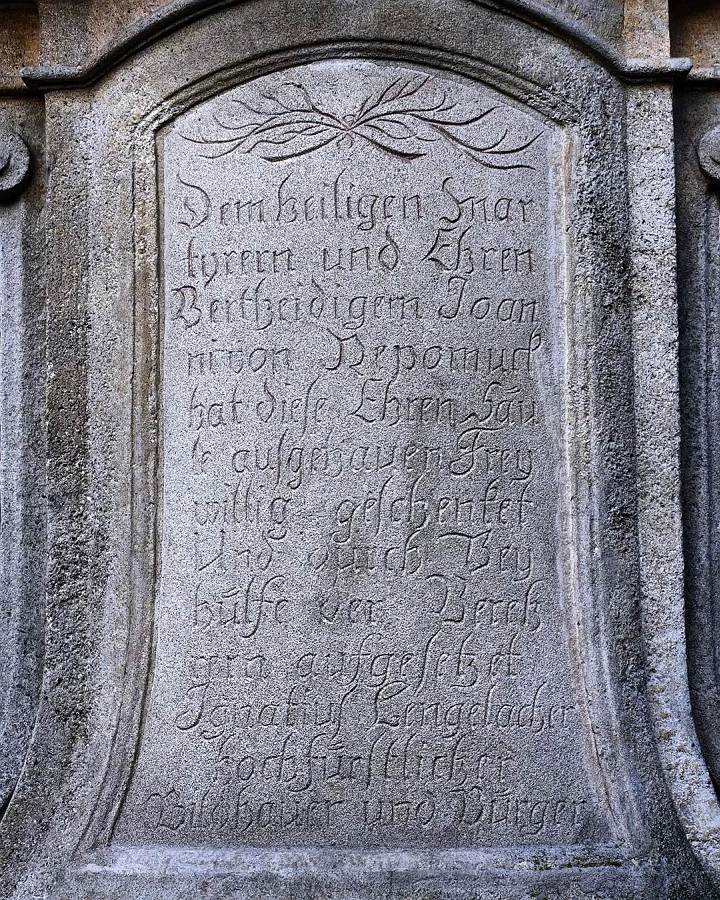 Dem heiligen Mar
tyrern und Ehren
Vertheidigern Joan
ni von Nepomuck
hat diese Ehren Säu
le ausgehauen Frey
willig geschenket
Und durch Bey
hülfe
aufgesetzet
Ignatius Lengelacher
hochfürstlicher
Bildhauer und Bürger